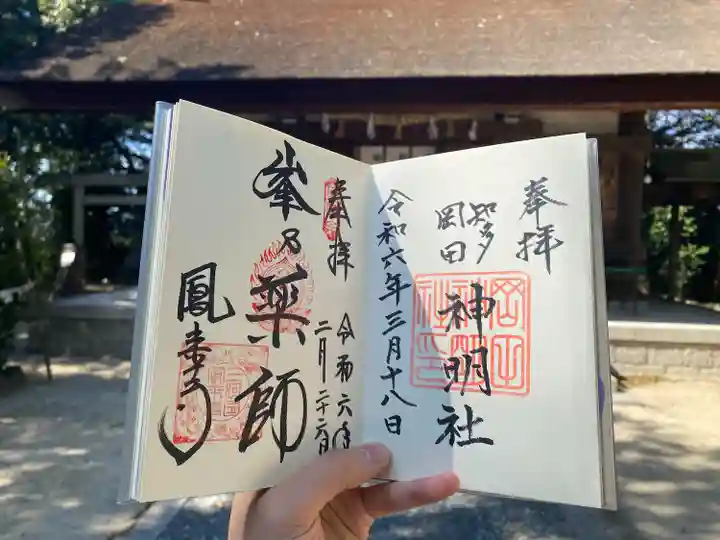 奉拝
知多
岡田
神明社
令和六年三月十八日
奉拝
令和六年
二月二十六日
峯乃薬師
鳳来寺